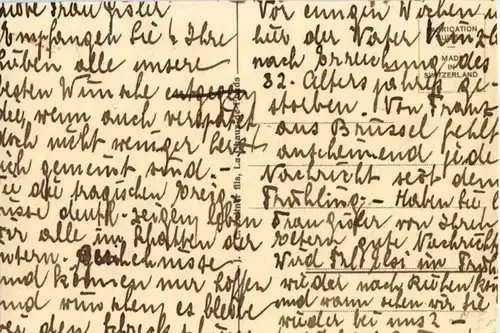 Frau Gisler
Empfangen Sie & Ihre
Lieben alle unsere
besten Wünsche entgegen
die, wenn auch verspätet
doch nicht weniger herz-
lich gemeint sind. -
Wie die tragischen Ereig-
nisse deutl. zeigen, leben
wir alle im Schatten der
und können nur hoffen
und wünschen es bleibe
bei den
Vor einigen Wochen i
hier der Vater
nach Erreichung des
82. Altersjahres ge-
storben. Von Franz
aus Brüssel fehlt
anscheinend jede
Nachricht seit dem
Frühling. - Haben Sie l.
Frau Gisler von Ihren
Eltern gute Nachricht
Wird im Früh
wieder nach kön
und wann sehen wir Sie
wieder bei uns? -
FABRICATION
SUISSE
MADE
IN
SWITZERLAND
fils, La Chaux-de-Fonds